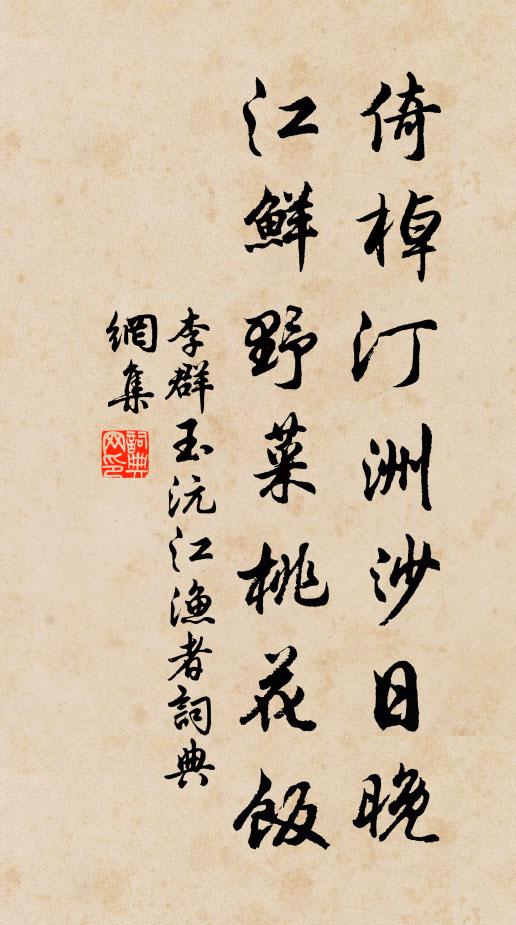 倚棹汀洲沙日晚
江鮮野菜桃花飯
李群玉沅江漁者詞典
網集
詞典
网印